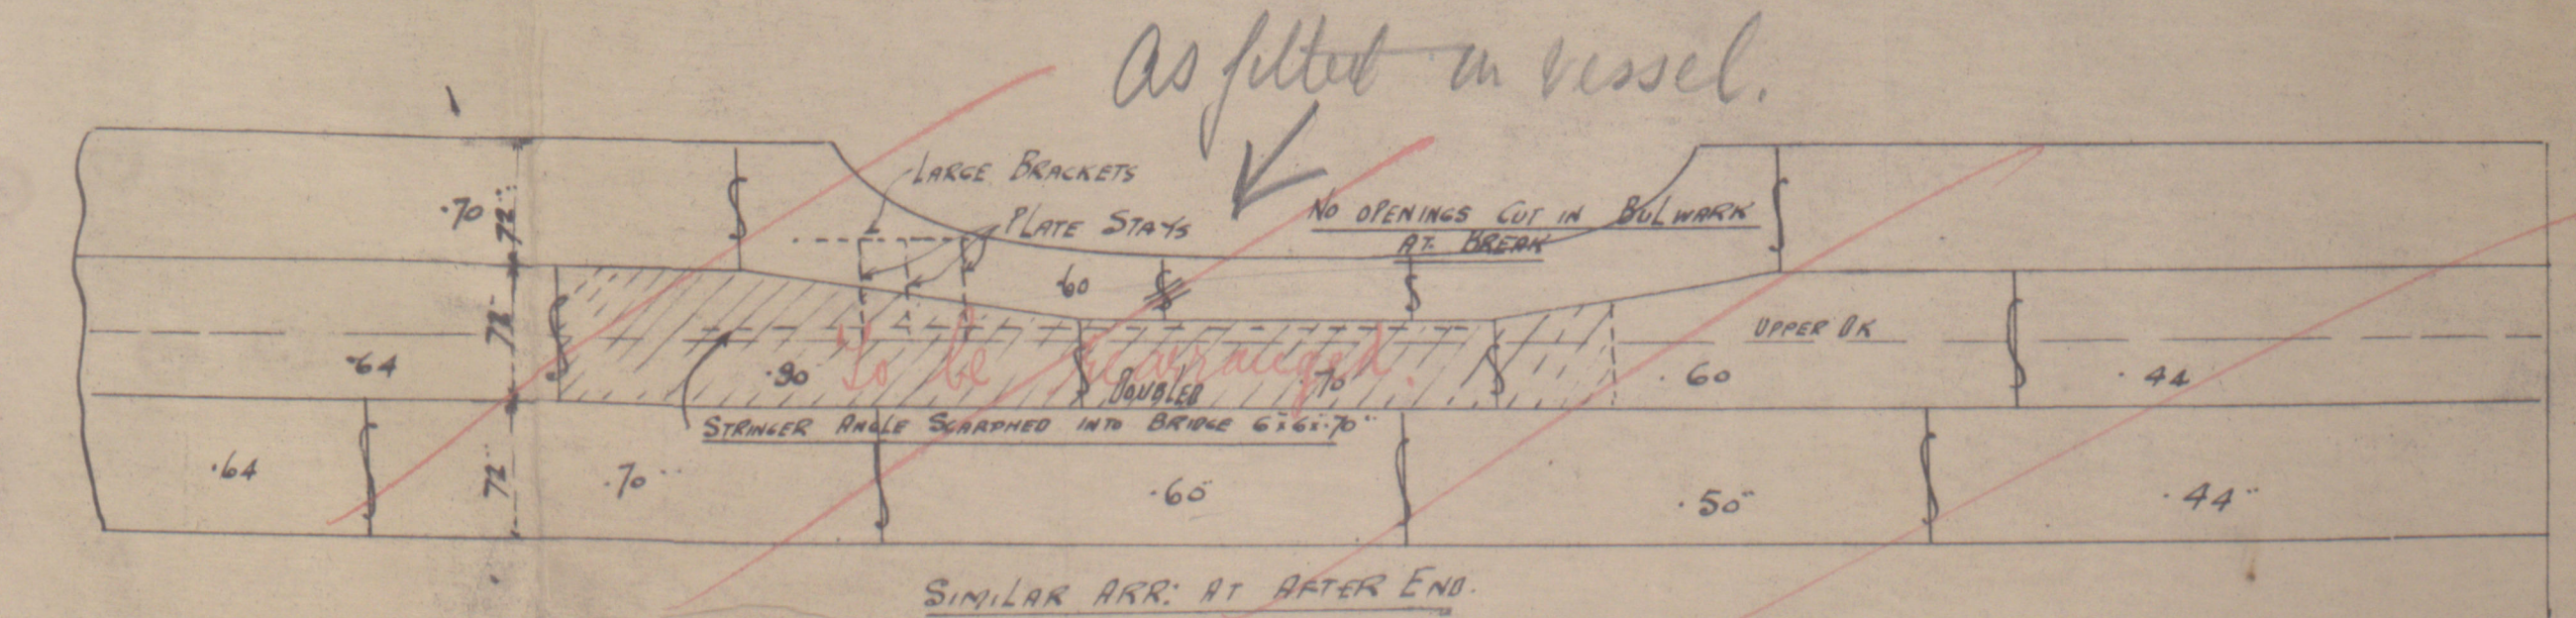 As fitted in vessel.
LARGE BRACKETS
PLATE STAYS
NO OPENINGS CUT IN BULWARK
AT BREAK
·70
72"
60
72"
UPPER DK
·64
·90
To be rearranged.
DOUBLED
·70
·60
·44
STRINGER ANGLE SCARPHED INTO BRIDGE 6"x6"x·70"
·64
72"
·70"
·60"
·50"
·44"
SIMILAR ARR: AT AFTER END.